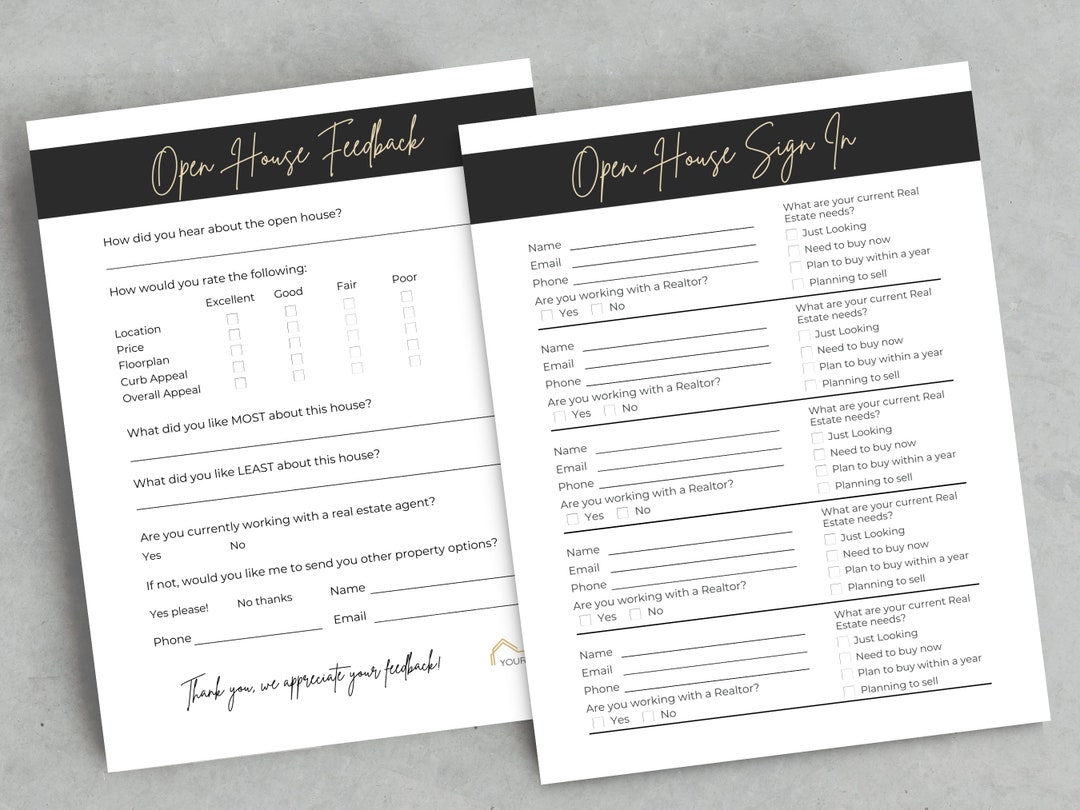 Open House Feedback
How did you hear about the open house?
How would you rate the following:
Excellent Good Fair Poor
Location
Price
Floorplan
Curb Appeal
Overall Appeal
What did you like MOST about this house?
What did you like LEAST about this house?
Are you currently working with a real estate agent?
Yes No
If not, would you like me to send you other property options?
Yes please! No thanks Name
Phone Email
Thank you, we appreciate your feedback!
YOUR
Open House Sign In
Name
Email
Phone
Are you working with a Realtor?
Yes No
What are your current Real
Estate needs?
Just Looking
Need to buy now
Plan to buy within a year
Planning to sell
Name
Email
Phone
Are you working with a Realtor?
Yes No
What are your current Real
Estate needs?
Just Looking
Need to buy now
Plan to buy within a year
Planning to sell
Name
Email
Phone
Are you working with a Realtor?
Yes No
What are your current Real
Estate needs?
Just Looking
Need to buy now
Plan to buy within a year
Planning to sell
Name
Email
Phone
Are you working with a Realtor?
Yes No
What are your current Real
Estate needs?
Just Looking
Need to buy now
Plan to buy within a year
Planning to sell
Name
Email
Phone
Are you working with a Realtor?
Yes No
What are your current Real
Estate needs?
Just Looking
Need to buy now
Plan to buy within a year
Planning to sell